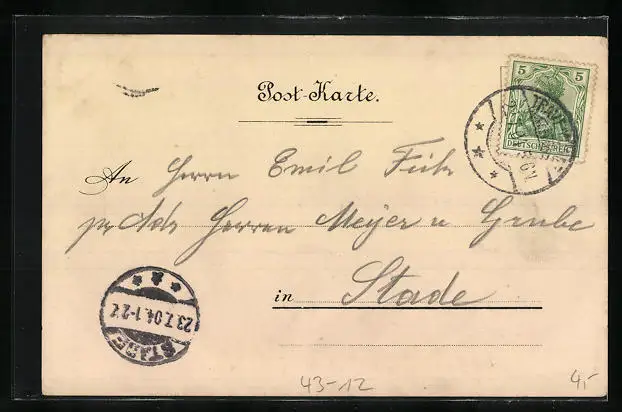 Post-Karte.
5 5
DEUTSCHES REICH
An Herrn Emil
pr Adr Herren Meyer u Grube
in Stade
STADE
23.7.04.1-2
43-12
4,-